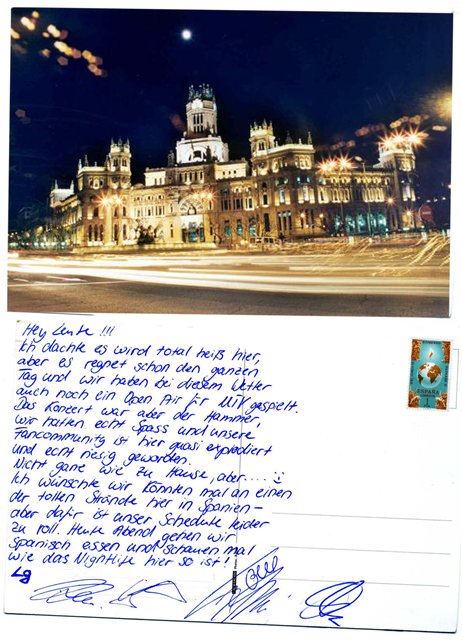 Hey Leute !!!
Ich dachte es wird total heiß hier,
aber es regnet schon den ganzen
Tag und wir haben bei diesem Wetter
auch noch ein Open Air für MTV gespielt.
Das Konzert war aber der Hammer,
wir hatten echt Spass und unsere
Fancommunity ist hier quasi explodiert
und echt riesig geworden.
Nicht ganz wie zu Hause, aber....
Ich wünschte wir könnten mal an einen
der tollen Strände hier in Spanien-
aber dafür ist unser Schedule leider
zu voll. Heute Abend gehen wir
Spanisch essen und schauen mal
wie das Nightlife hier so ist!
Lg
ESPAÑA